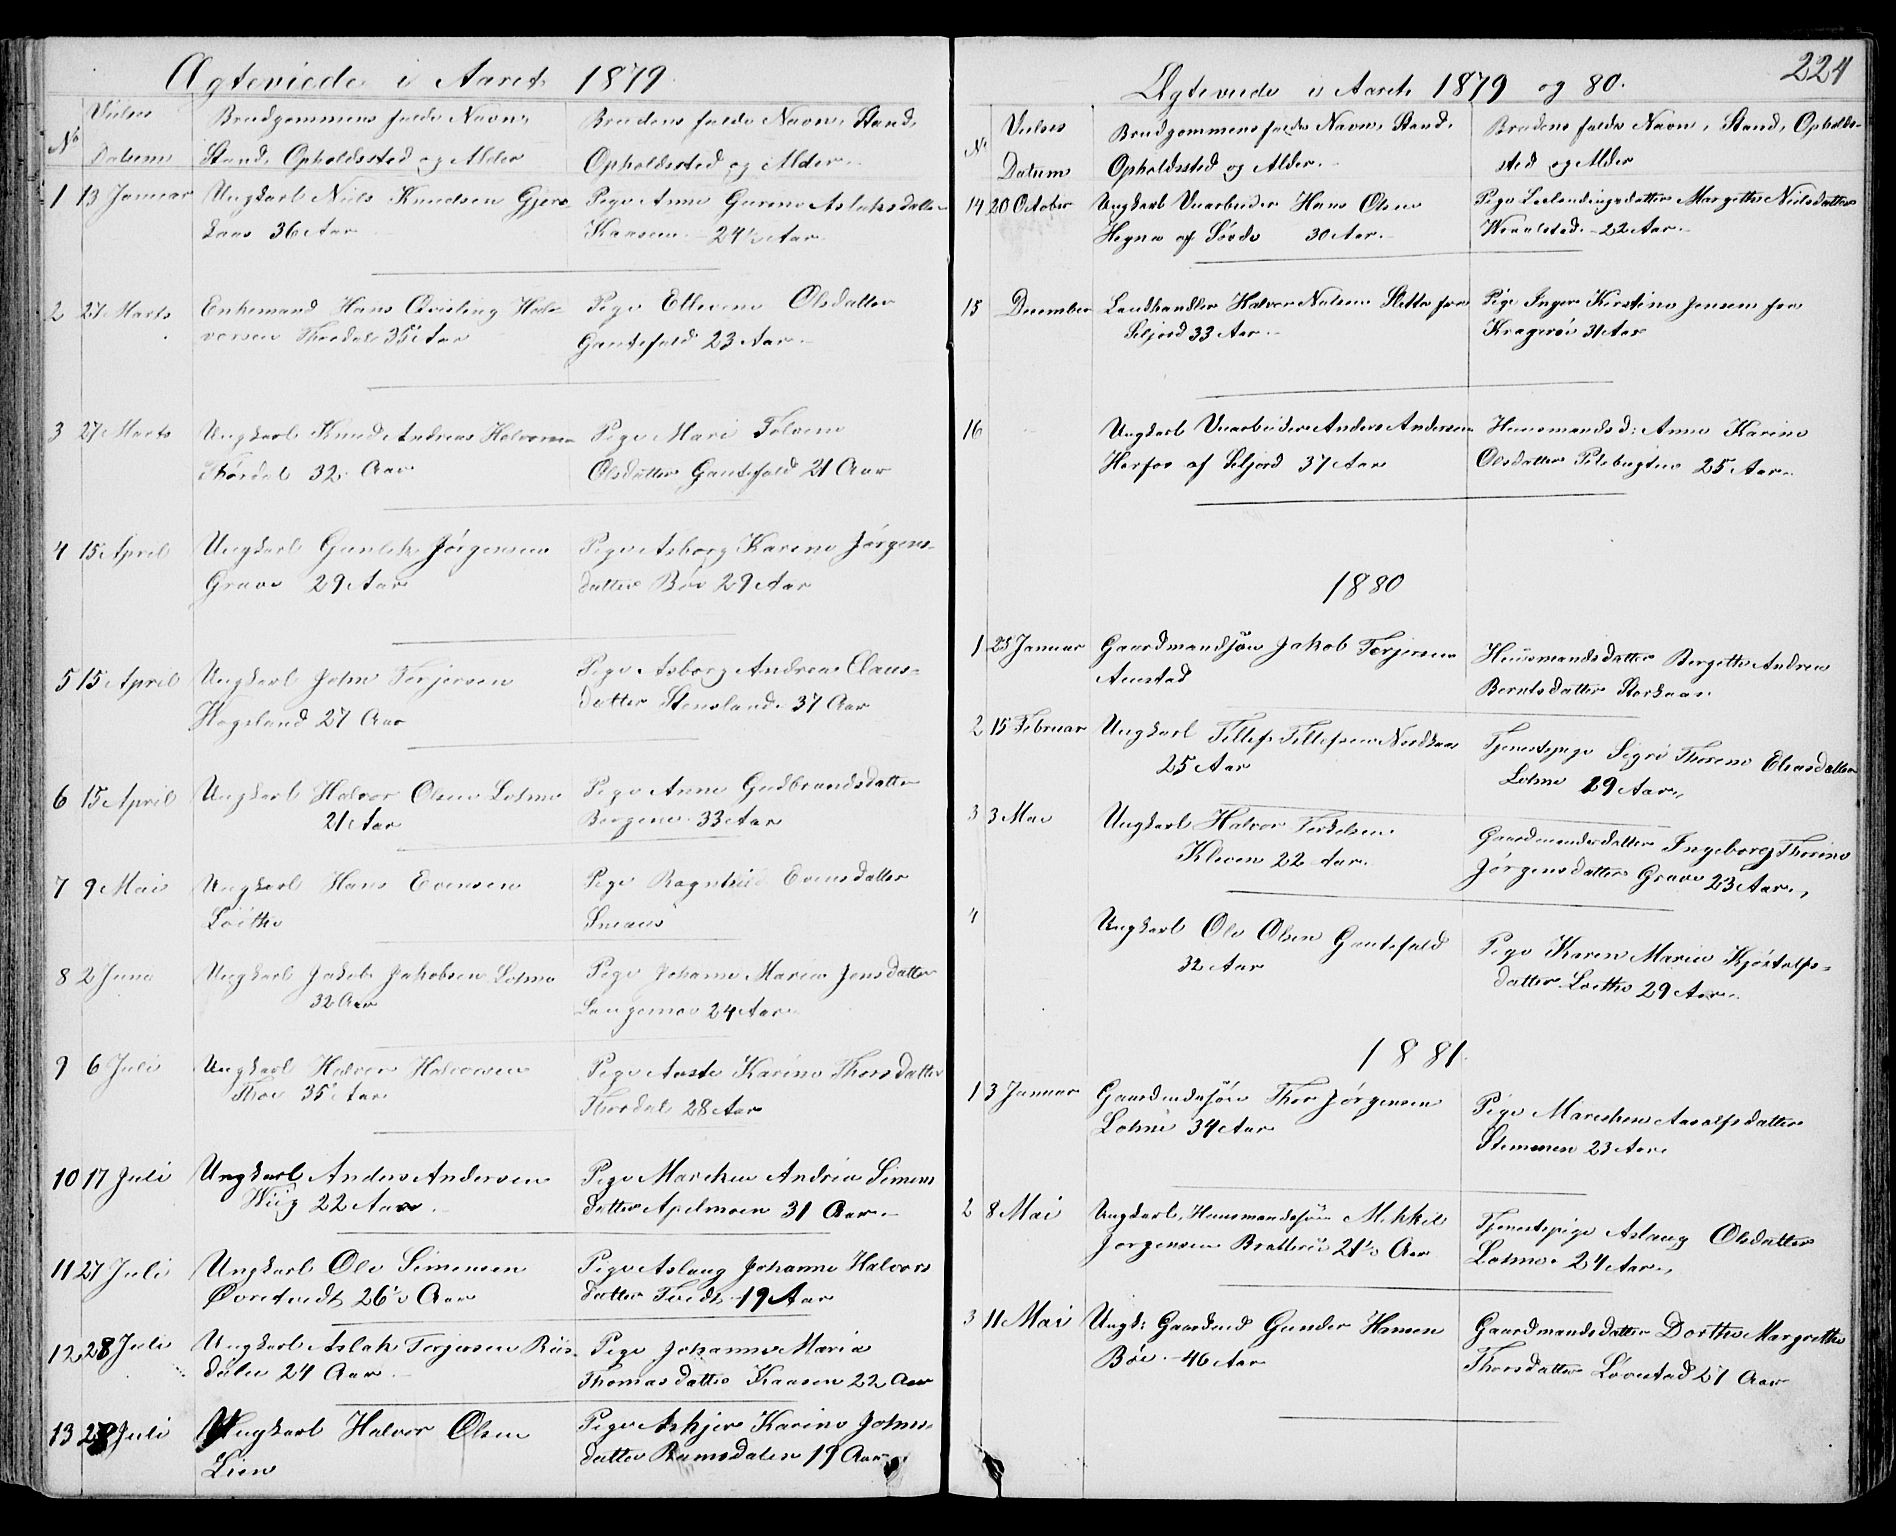 Ægteviede i Aaret 1879.
No
Vielses
Datum
Brudgommens fulde Navn,
Stand, Opholdssted og Alder
Brudens fulde Navn, Stand,
Opholdssted og Alder.
1 13 Januar Ungkarl Niels Knudsen
36 Aar
Pige Anne Gurine Aslaksdatter
Kaasen 24½ Aar
2 27 Marts Enkemand Hans Qvisling Hal-
vorsen Thordal 35 Aar
Pige Ellevine Olsdatter
Gautefald 23 Aar.
3 27 Marts Ungkarl Knud Andreas Halvorsen
32 Aar
Pige Mari Tolvine
Olsdatter Gautefald 21 Aar
4 15 April Ungkarl Gunlek Jörgensen
Grave 29 Aar
Pige Asborg Karine Jörgens-
datter Böe 29 Aar
5 15 April Ungkarl John Terjersen
Hogsland 27 Aar
Pige Asborg Andrea Claus-
datter Stensland. 37 Aar
6 15 April Ungkarl Halvor Olsen Lohne
21 Aar
Pige Anne Gudbrandsdatter
Bergene 33 Aar
7 9 Mai Ungkarl Hans Evensen
Löithe
Pige Ragnhild Evensdatter
8 2 Juni Ungkarl Jakob Jakobsen Lohne
32 Aar
Pige Johanne Marie Jensdatter
Langemoe 24 Aar
9 6 Juli Ungkarl Halvor Halvorsen
35 Aar
Pige Aaste Karine Thorsdatter
Thordal 28 Aar
10 17 Juli Ungkarl Anders Andersen
Wiig 22 Aar.
Pige Marichen Andrea Simens
datter Apelmoen 31 Aar.
11 27 Juli Ungkarl Ole Simensen
Övretvedt 26½ Aar
Pige Aslaug Johanne Halvors
datter Tvedt 19 Aar
12 28 Juli Ungkarl Aslak Terjersen Riis-
dalen 24 Aar.
Pige Johanne Maria
Thomasdatter Kaasen 22 Aar
13 28 Juli Ungkarl Halvor Olsen
Lien
Pige Askjer Karine Johns-
datter Ramsdalen 19 Aar
224
Ægteviede i Aaret 1879 og 80.
No
Vielses
Datum
Brudgommens fulde Navn, Stand,
Opholdssted og Alder.
Brudens fulde Navn, Stand, Opholds-
sted og Alder
14 20 October Ungkarl Veiarbeider Hans Olsen
Hegna af 30 Aar.
Pige Leilendingsdatter Margethe Nielsdatter
22 Aar.
15 December Landhandler Halvor Nielsen Sletta fra
Seljord 33 Aar.
Pige Inger Kirstine Jensen fra
Krageröe 31 Aar
16 Ungkarl Veiarbeider Anders Andersen
Herfos af Seljord 37 Aar
Huusmandsd: Anne Karine
Olsdatter 25 Aar.
1880
1 23 Januar Gaardmandsön Jakob Terjersen
Aanstad
Huusmandsdatter Bergethe Andrea
Berntsdatter Storkaas
2 15 Februar Ungkarl Tellef Tellefsen Nordkaas
25 Aar
Tjenestepige Sigri Thorine Eliasdatter
Lohne 29 Aar.
3 3 Mai Ungkarl Halvor Terkelsen
Kleven 22 Aar.
Gaardmandsdatter Ingeborg Thorine
Jörgensdatter Grave 23 Aar.
4 Ungkarl Ole Olsen Gautefald
32 Aar
Pige Karen Marie Kjöstolfs-
datter Löithe 29 Aar.
1881.
1 3 Januar Gaardmdsön Thor Jörgensen
Lohne 34 Aar
Pige Marichen Aasolfsdatter
Stemmen 23 Aar
2 8 Mai Ungkarl, Huusmandsön Mikkel
Jörgensen 21½ Aar
Tjenestepige Aslaug Olsdatter
Lohne. 24 Aar.
3 11 Mai Ungk: Gaardmd Gunder Hansen
Böe. 46 Aar
Gaardmandsdatter Dorthe Margrethe
Thorsdatter Lövestad 27 Aar